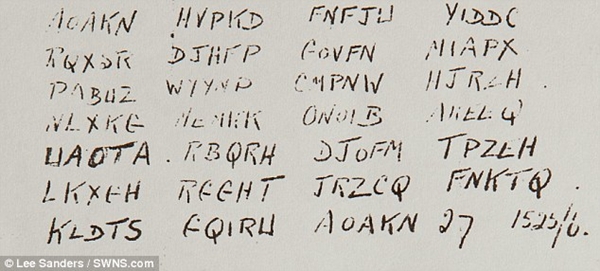 AOAKN HVPKD FNFJU YIDDC
RQXSR DJHFP GOVFN MIAPX
PABUZ WYYNP CMPNW HJRZH .
NLXKG MEMKK ONOIB AKEEQ
UAOTA . RBQRH DJOFM TPZEH
LKXGH RGGHT JRZCQ FNKTQ .
KLDTS GQIRU AOAKN 27 1525/6.
© Lee Sanders / SWNS.com